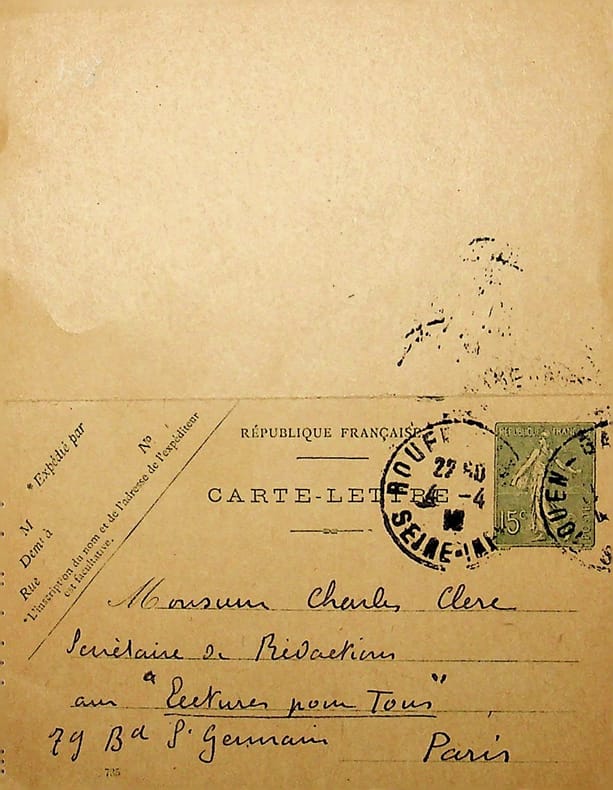 RÉPUBLIQUE FRANÇAISE
CARTE-LETTRE
* Expédié par
M
Demt à
Rue
No
*L'inscription du nom et de l'adresse de l'expéditeur
est facultative.
ROUEN
22 50
4 -4
SEINE-INF
RÉPUBLIQUE FRANÇAISE
15c
ROUEN
Monsieur Charles Clerc
Secrétaire de Rédactions
aux "Lectures pour Tous"
79 Bd St Germain
Paris
735